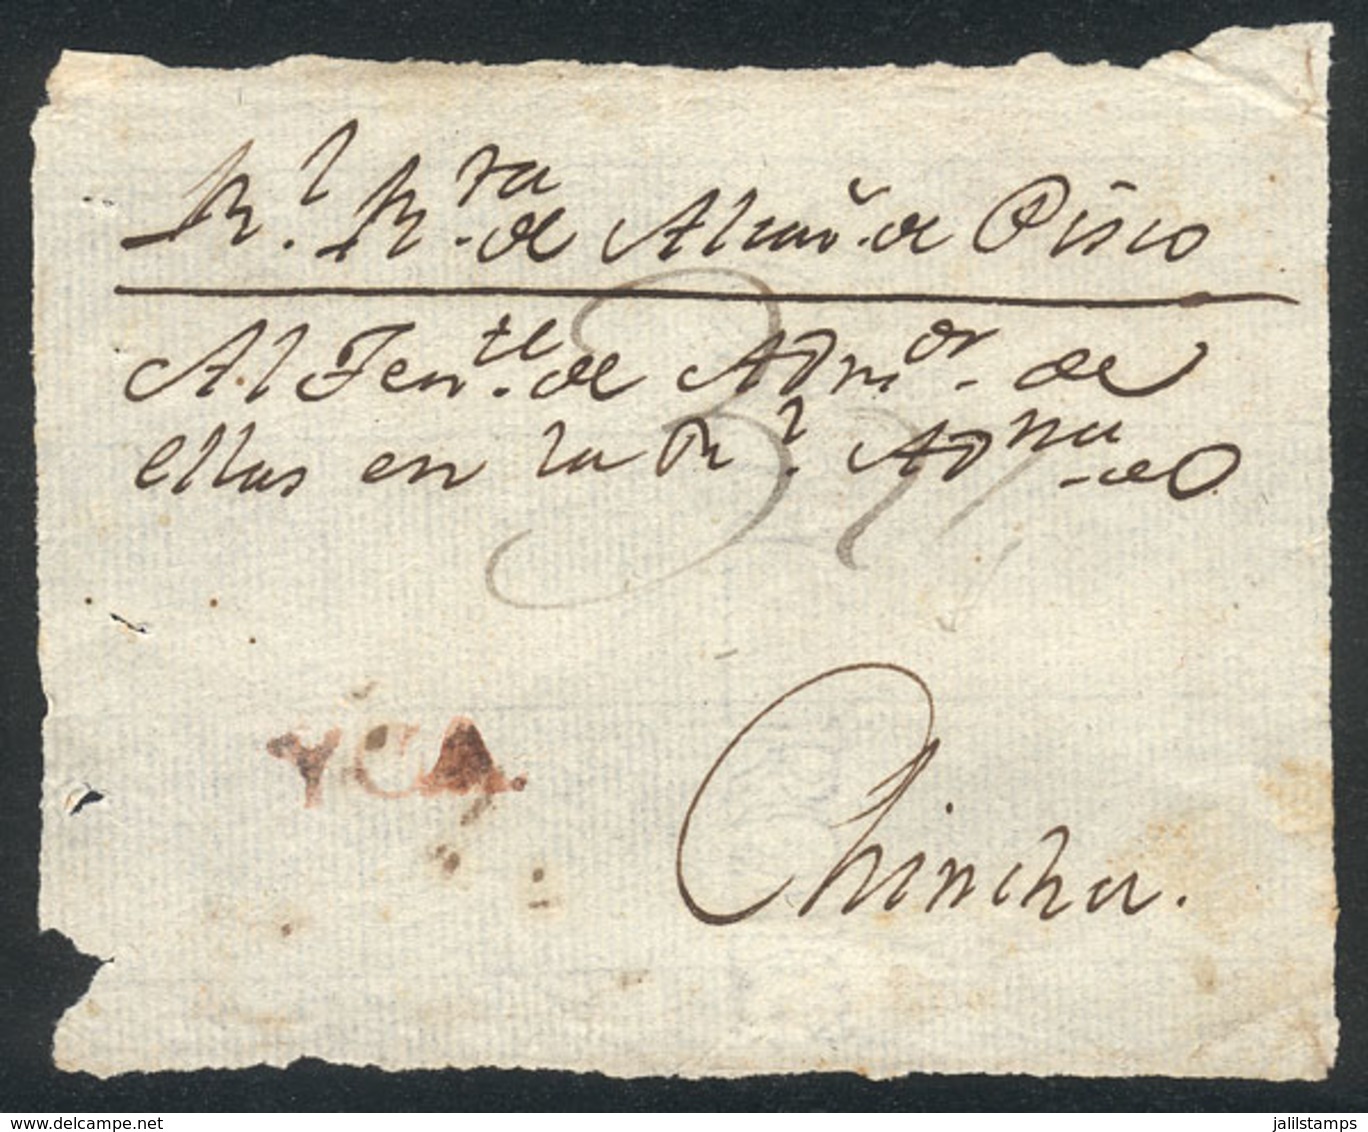 R.l R.ta de Alcav.s de Pisco
Al Ten.te de Adm.or de
ellas en la R.l Adm.na de
3
YCA.
Chincha.
www.delcampe.net
jalilstamps